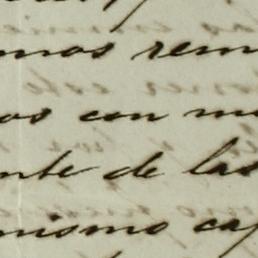 mos rem
os con m
nte de las
mismo ca